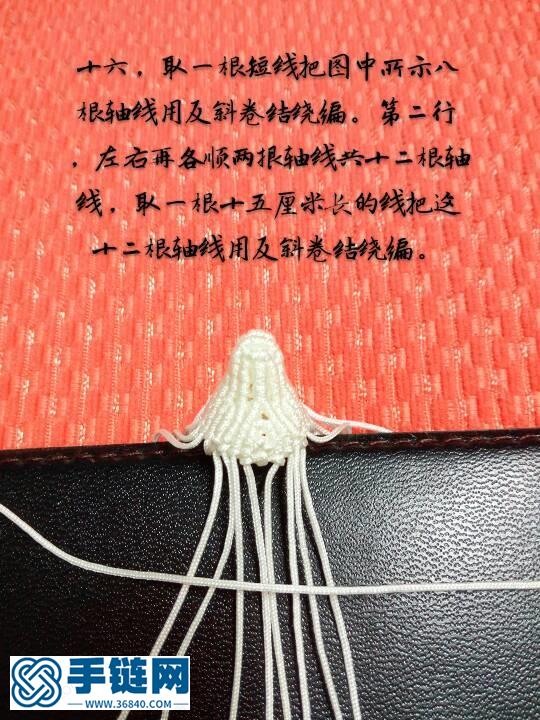 十六，取一根短线把图中所示八
根轴线用反斜卷结绕编。第二行
，左右再各顺两根轴线共十二根轴
线，取一根十五厘米长的线把这
十二根轴线用反斜卷结绕编。
手链网
www.36840.com